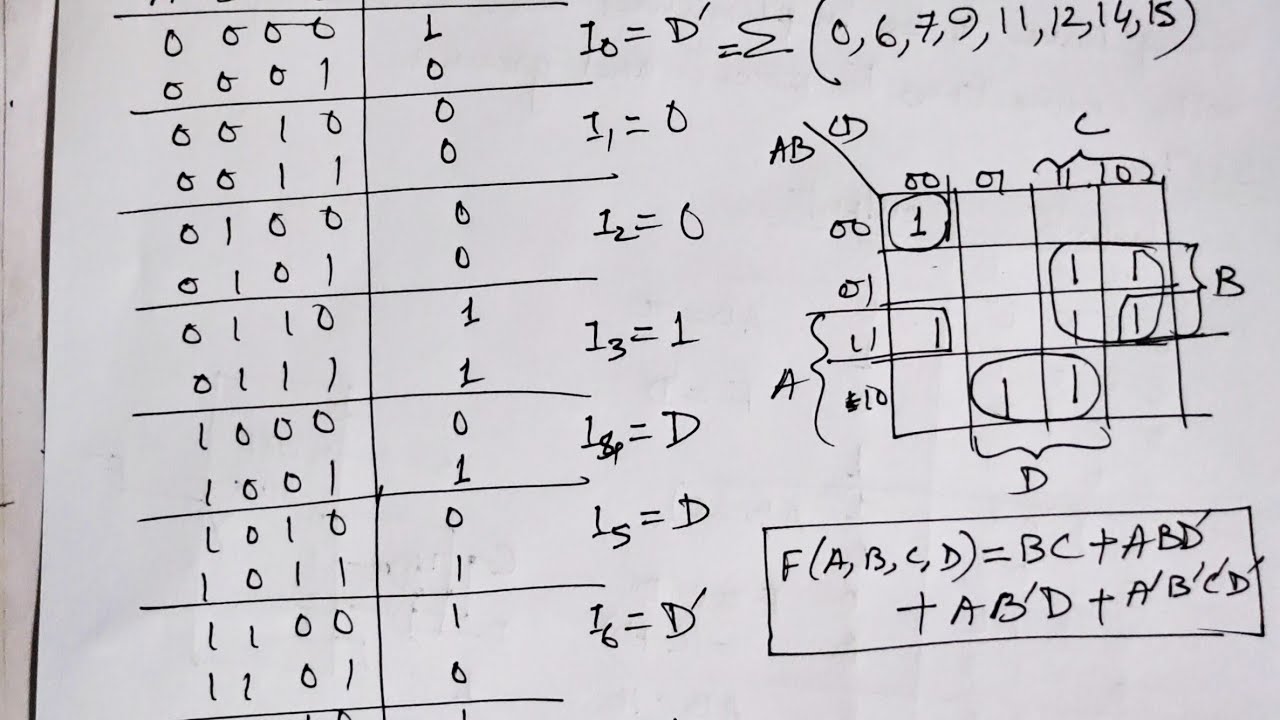 0 0 0 0 1 I0 = D′ = Σ (0,6,7,9,11,12,14,15)
0 0 0 1 0
0 0 1 0 0 I1 = 0
0 0 1 1 0
0 1 0 0 0 I2 = 0
0 1 0 1 0
0 1 1 0 1 I3 = 1
0 1 1 1 1
1 0 0 0 0 I4 = D
1 0 0 1 1
1 0 1 0 0 I5 = D
1 0 1 1 1
1 1 0 0 1 I6 = D′
1 1 0 1 0
C
AB CD
00 01 11 10
00 1
01 1 1
11 1 1 1
10 1 1
A
B
D
F(A,B,C,D) = BC + ABD′
+ AB′D + A′B′C′D′